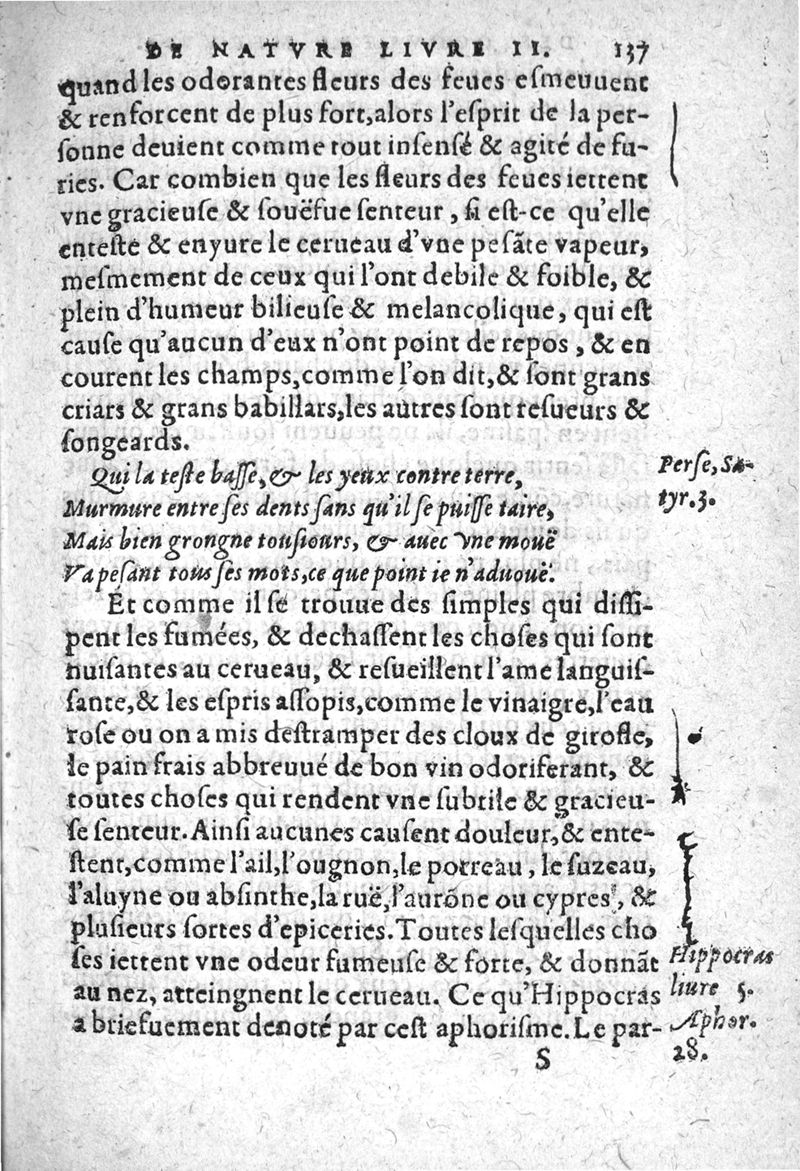 DE NATVRE LIVRE II. 137
quand les odorantes fleurs des feues eſmeuuent
& renforcent de plus fort,alors l'eſprit de la per-
ſonne deuient comme tout inſenſé & agité de fu-
ries. Car combien que les fleurs des feues iettent
vne gracieuſe & ſouëfue ſenteur, ſi eſt-ce qu'elle
enteſte & enyure le cerueau d'vne peſãte vapeur,
meſmement de ceux qui l'ont debile & foible, &
plein d'humeur bilieuſe & melancolique, qui eſt
cauſe qu'aucun d'eux n'ont point de repos, & en
courent les champs,comme l'on dit,& ſont grans
criars & grans babillars,les autres ſont reſueurs &
ſongeards.
Qui la teſte baſſe, & les yeux contre terre,
Perſe, Sa-
Murmure entre ſes dents ſans qu'il ſe puiſſe taire,
tyr.3.
Mais bien grongne touſiours, & auec vne mouë
Va peſant tous ſes mots,ce que point ie n'aduouë.
Et comme il ſe trouue des ſimples qui diſſi-
pent les fumées, & dechaſſent les choſes qui ſont
nuiſantes au cerueau, & reſueillent l'ame languiſ-
ſante,& les eſpris aſſopis,comme le vinaigre,l'eau
roſe ou on a mis deſtramper des cloux de girofle,
le pain frais abbreuué de bon vin odoriferant, &
toutes choſes qui rendent vne ſubtile & gracieu-
ſe ſenteur. Ainſi aucunes cauſent douleur,& ente-
ſtent,comme l'ail,l'ougnon,le porreau, le ſuzeau,
l'aluyne ou abſinthe,la ruë,l'aurõne ou cypres, &
pluſieurs ſortes d'epiceries. Toutes leſquelles cho
ſes iettent vne odeur fumeuſe & forte, & donnãt
Hippocras
au nez, atteingnent le cerueau. Ce qu'Hippocras
liure 5.
a briefuement denoté par ceſt aphoriſme. Le par-
Aphor.
28.
S